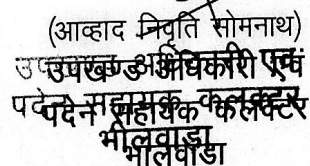 (आव्हाद निवृति सोमनाथ)
उपखण्ड अधिकारी एवं
पदेन सहायक कलक्टर
भीलवाड़ा